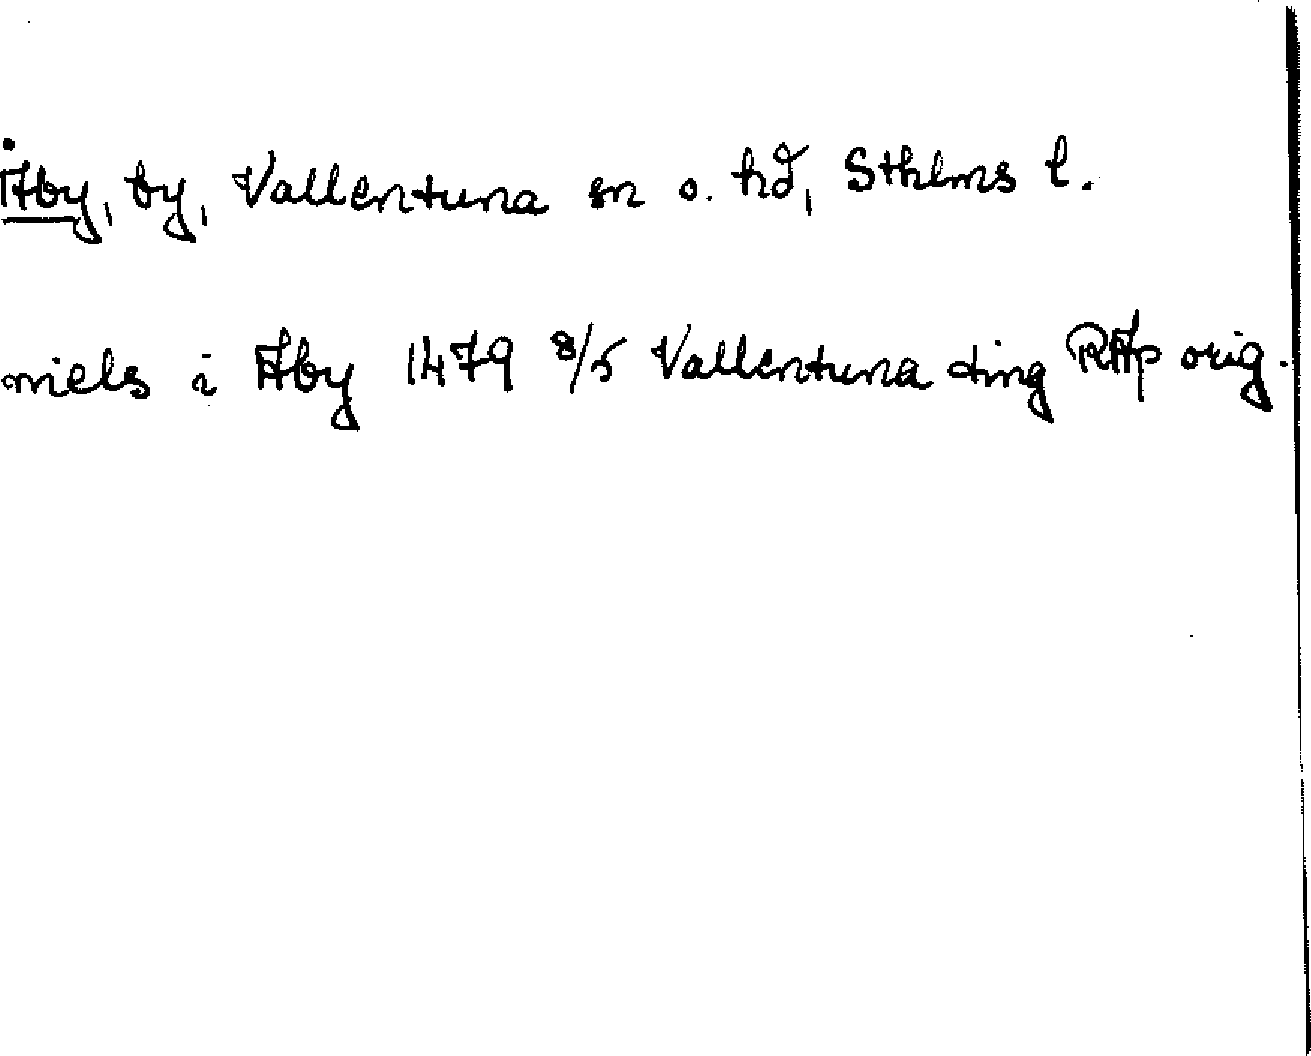 Åby, by, Vallentuna sn o. hd, Sthlms l.
niels i Aby 1479 8/5 Vallentuna ting RAp orig.